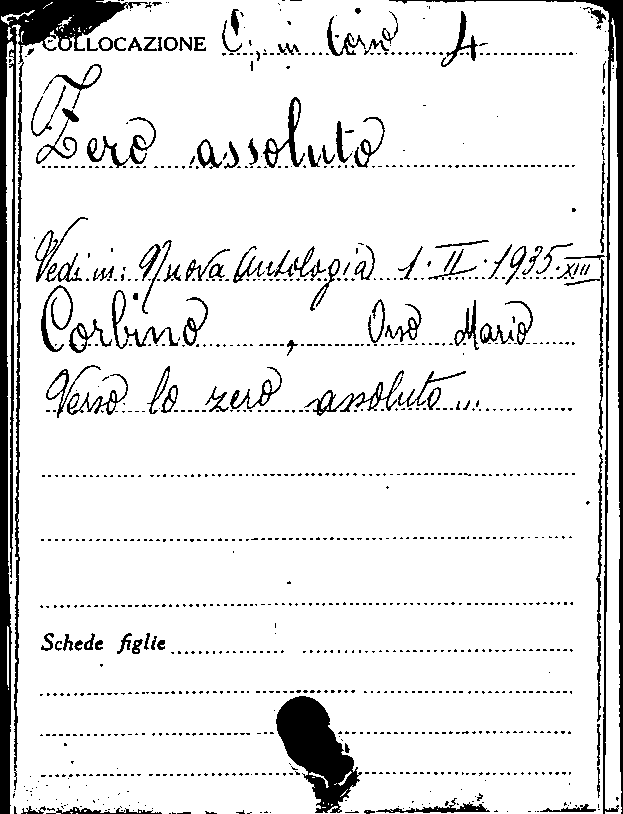 COLLOCAZIONE C; in Corso 4
Zero assoluto
Vedi in: Nuova Antologia 1·II·1935·XIII
Corbino, Orso Mario
Verso lo zero assoluto...
Schede figlie